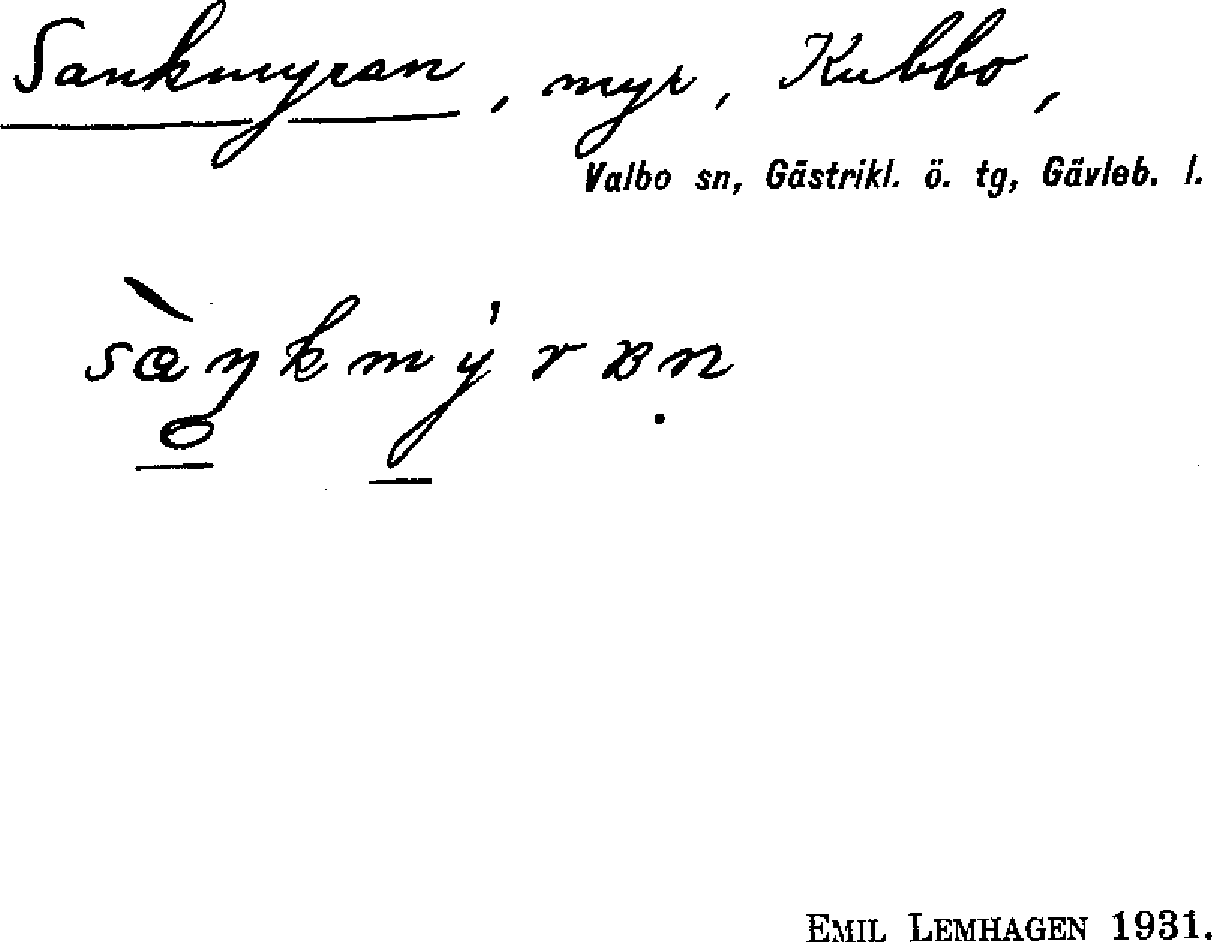 Sankmyran, myr, Kubbo,
Valbo sn, Gästrikl. ö. tg, Gävleb. l.
EMIL LEMHAGEN 1931.